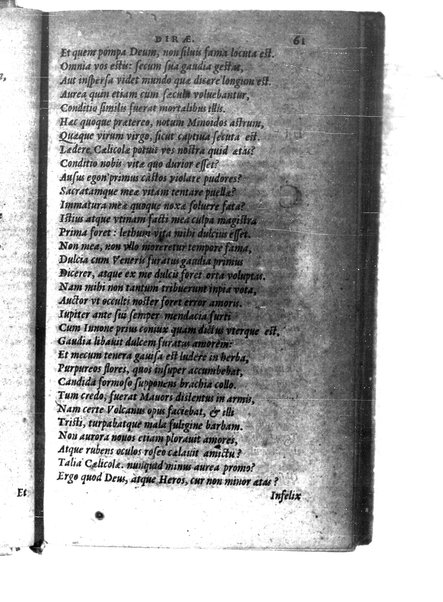 DIRÆ. 61
Et quem pompa Deum, non siluis fama locuta est.
Omnia vos estis: secum sua gaudia gestat,
Aut inspersa videt mundo quæ dicere longum est.
Aurea quin etiam cum secula voluebantur,
Conditio similis fuerat mortalibus illis.
Hæc quoque prætereo, notum Minoidos astrum,
Quæque virum virgo, sicut captiua secuta est.
Lædere Cælicolæ potuit vos nostra quid ætas?
Conditio nobis vitæ quo durior esset?
Ausus egon' primus castos violare pudores?
Sacratamque meæ vitam tentare puellæ?
Immatura meæ quoque noxæ foluere fata?
Istius atque vtinam facti mea culpa magistra
Prima foret: lethum vita mihi dulcius esset.
Non mea, non vllo moreretur tempore fama,
Dulcia cum Veneris furatus gaudia primus
Dicerer, atque ex me dulcis foret orta voluptas.
Nam mihi non tantum tribuerunt inpia vota,
Auctor vt occulti noster foret error amoris.
Iupiter ante sui semper mendacia furti
Cum Iunone prius coniux quam dictus vterque est.
Gaudia libauit dulcem furatus amorem:
Et mecum tenera gauisa est ludere in herba,
Purpureos flores, quos insuper accumbebat,
Candida formoso supponens brachia collo.
Tum credo, fuerat Mauors distentus in armis,
Nam certe Volcanus opus faciebat, & illi
Tristi, turpabatque mala fuligine barbam.
Non aurora nouos etiam plorauit amores,
Atque rubens oculos roseo cælauit amictu?
Talia Cælicolæ. nunquid minus aurea promo?
Ergo quod Deus, atque Heros, cur non minor ætas?
Infelix
Et